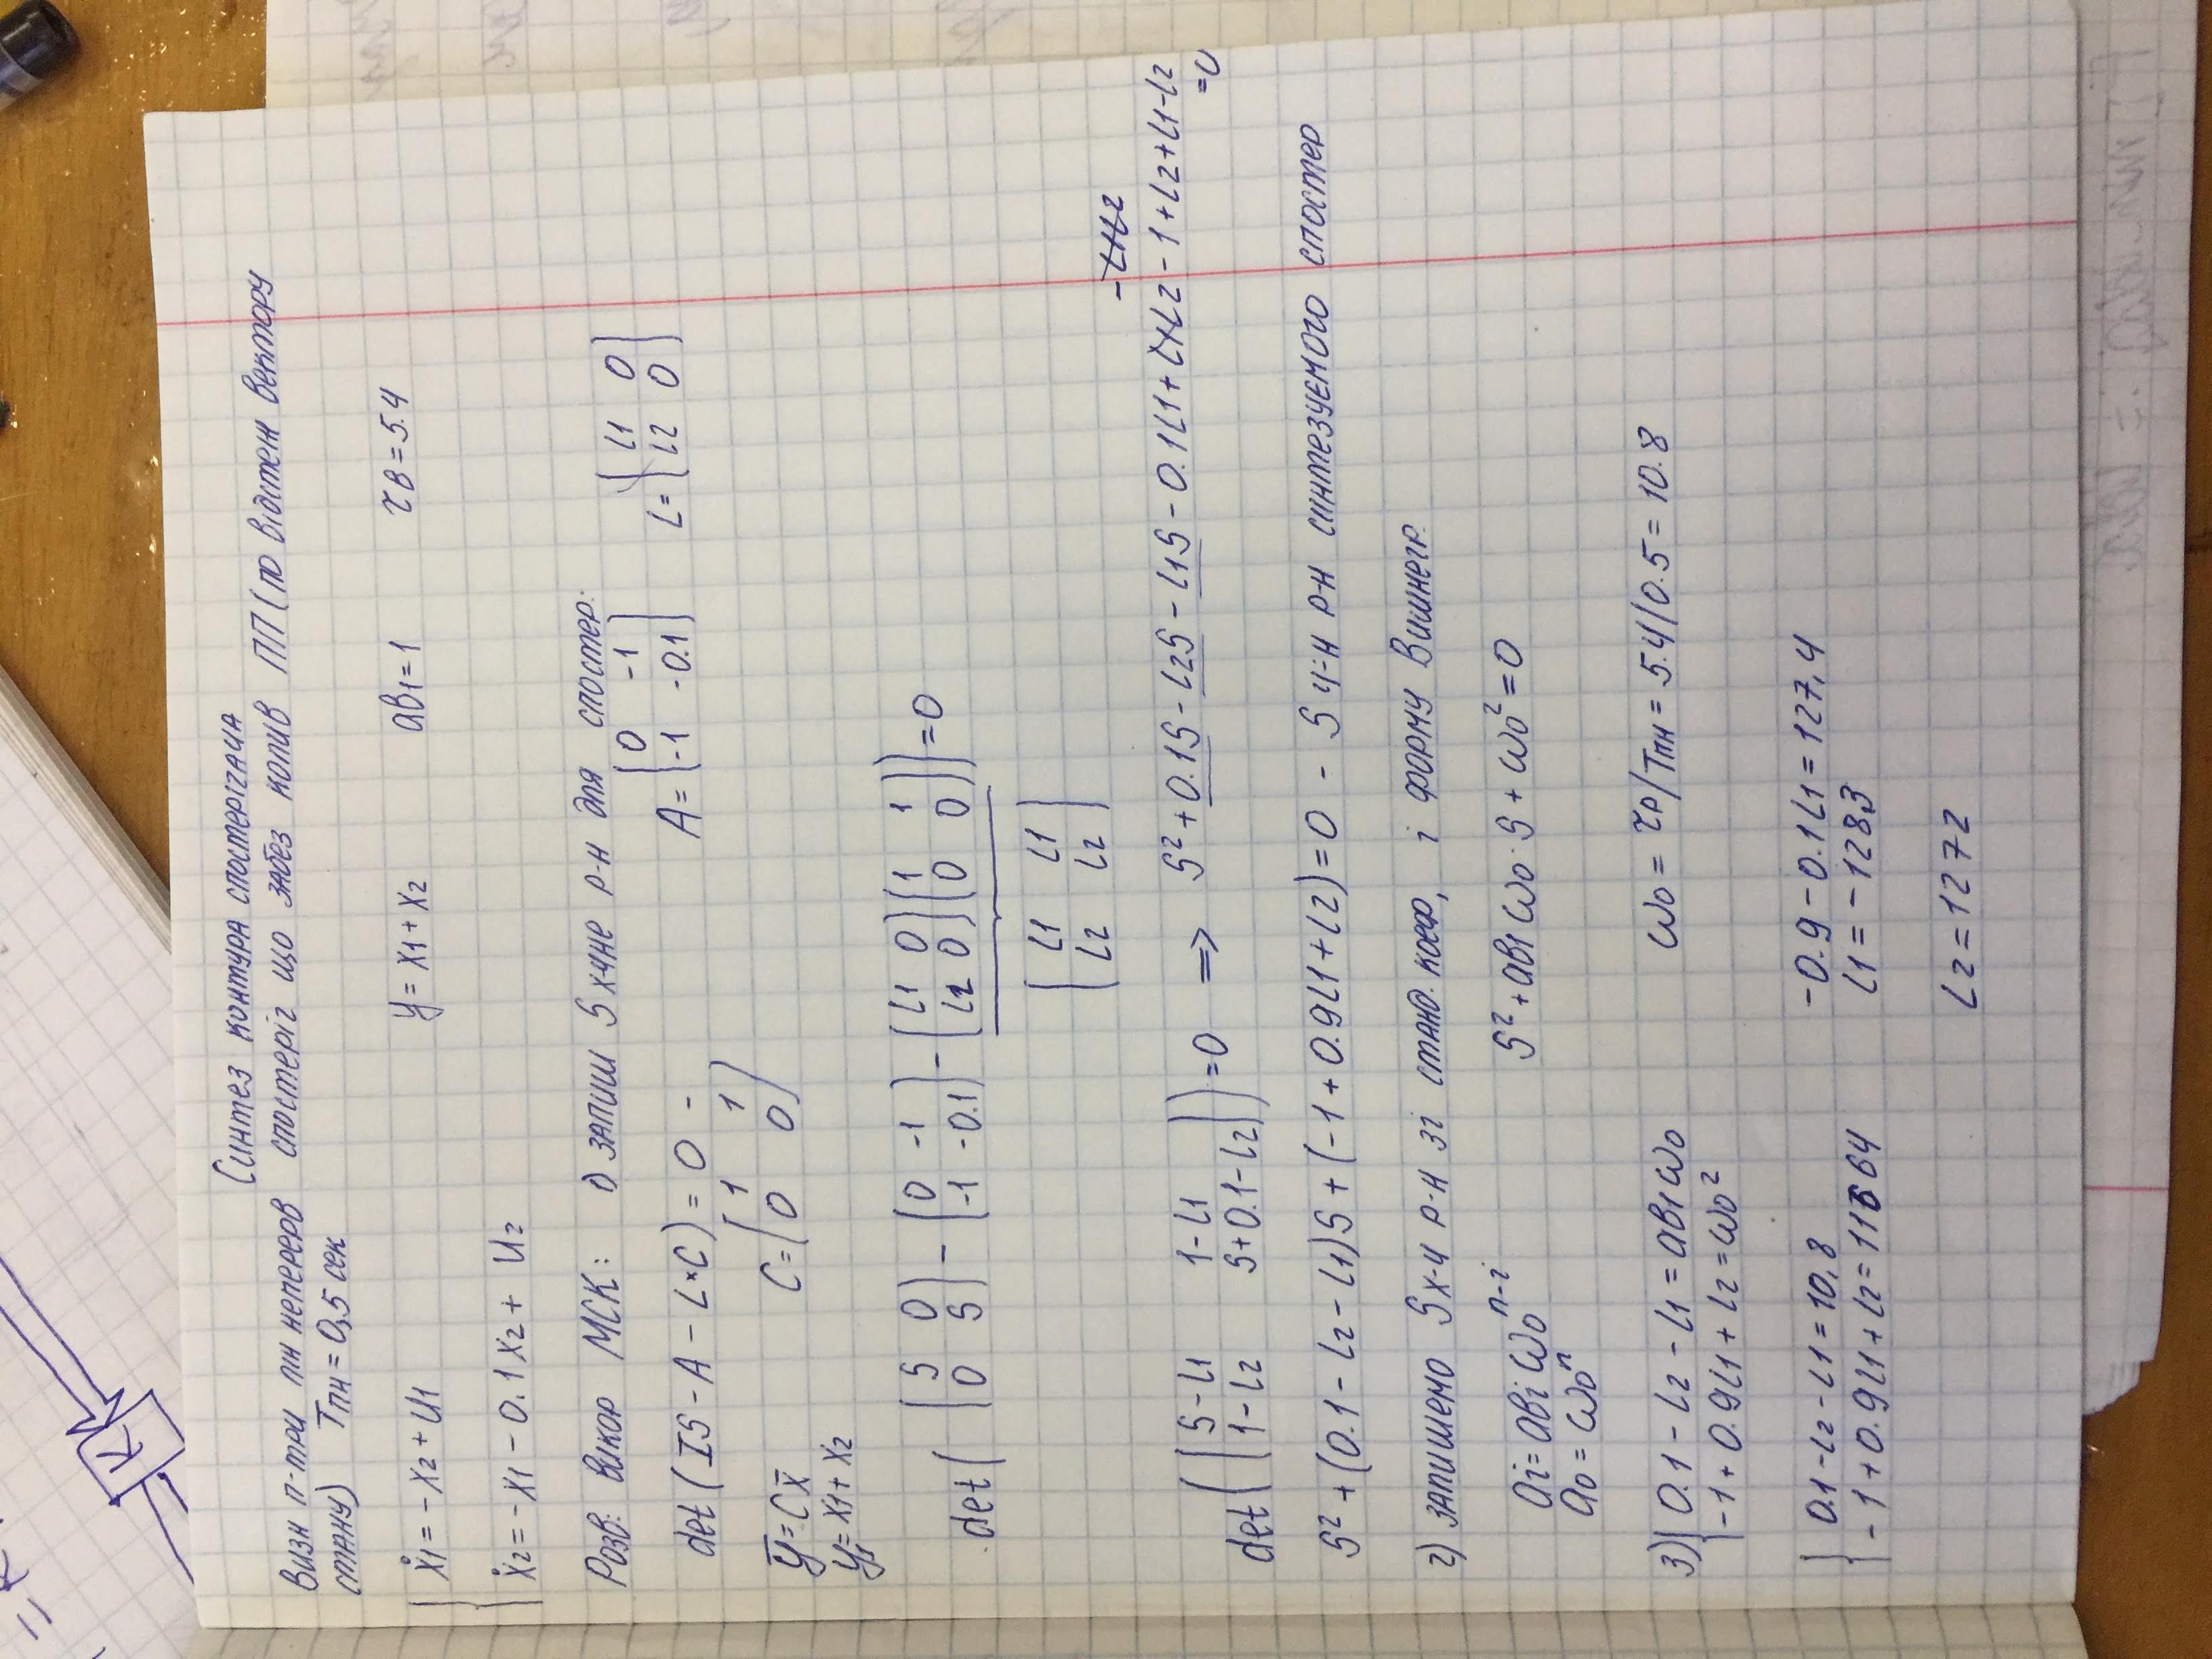 = K
K
Синтез контура спостерігача
Визн п-три лін неперерв спостеріг що забез колив ПП (по відстеж вектору
стану) Tпн = 0,5 сек
ẋ1 = -x2 + U1 y = x1 + x2 aв1 = 1 τв = 5.4
ẋ2 = -x1 - 0.1x2 + U2
Розв: викор МСК: 1) запиш S х-чне р-н для спостер:
det(IS - A - L×C) = 0 - A = [0 -1; -1 -0.1] L = [L1 0; L2 0]
ȳ = Cx̄ C = [1 1; 0 0]
y1 = x1 + x2
det([S 0; 0 S] - [0 -1; -1 -0.1] - [L1 0; L2 0][1 1; 0 0]) = 0
[L1 L1; L2 L2]
-L1L2
det([S-L1 1-L1; 1-L2 S+0.1-L2]) = 0 => S² + 0.1S - L2S - L1S - 0.1L1 + L1L2 - 1 + L2 + L1 - L2
= 0
S² + (0.1 - L2 - L1)S + (-1 + 0.9L1 + L2) = 0 - S ч-н р-н синтезуємого спостер
2) запишемо S х-ч р-н зі станд. коеф, і форму Вишнегр.
ai = aвi ω0^(n-i) S² + aв1 ω0·S + ω0² = 0
a0 = ω0^n
3) 0.1 - L2 - L1 = aв1 ω0 ω0 = τр/Tпн = 5.4/0.5 = 10.8
-1 + 0.9L1 + L2 = ω0²
0.1 - L2 - L1 = 10,8 -0.9 - 0.1L1 = 127,4
-1 + 0.9L1 + L2 = 116 64 L1 = -1283
L2 = 1272